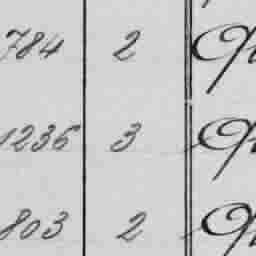 784 2
1236 3
803 2